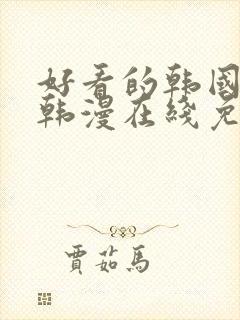 好看的韩国
韩漫在线免
贾茹马